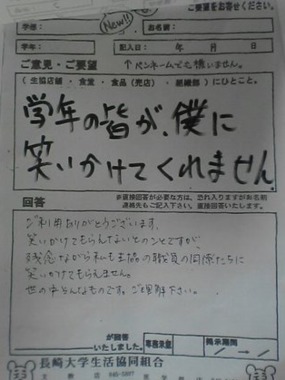 ご要望をお寄せください。
New!!
学部:
お名前:
学年:
記入日: 年 月 日
ご意見・ご要望
↑ペンネームでも構いません。
(生協店舗・食堂・食品(売店)・組織部)にひとこと。
学年の皆が、僕に
笑いかけてくれません
回答
※直接回答が必要な方は、恐れ入りますがお名前
連絡先もご記入下さい。直接回答いたします。
ご利用ありがとうございます。
笑いかけてもらえないとのことですが、
残念ながら私も生協の職員の同僚たちに
笑いかけてもらえません。
世の中そんなものです。ご理解下さい。
が回答
いたしました。
専務承認
掲示期間
/ → /
長崎大学生活協同組合